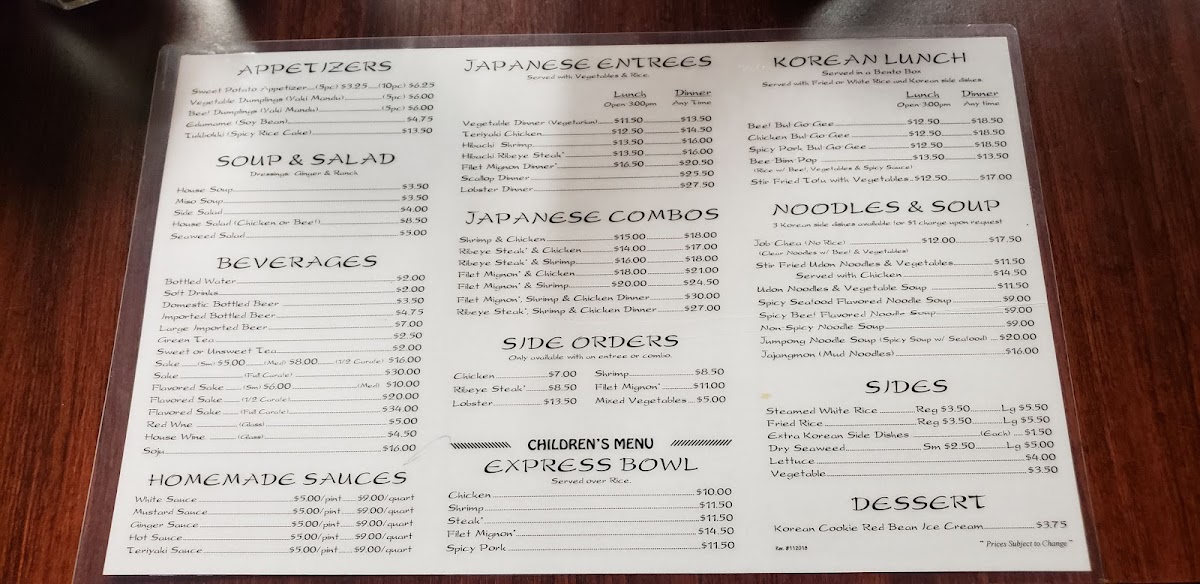 APPETIZERS
Sweet Potato Appetizer....(5pc) $3.25....(10pc) $6.25
Vegetable Dumplings (Yaki Mandu)....(5pc) $6.00
Beef Dumplings (Yaki Mandu)....(5pc) $6.00
Edamame (Soy Bean)....$4.75
Tukbokki (Spicy Rice Cake)....$13.50
SOUP & SALAD
Dressings: Ginger & Ranch
House Soup....$3.50
Miso Soup....$3.50
Side Salad....$4.00
House Salad (Chicken or Beef)....$8.50
Seaweed Salad....$5.00
BEVERAGES
Bottled Water....$2.00
Soft Drinks....$2.00
Domestic Bottled Beer....$3.50
Imported Bottled Beer....$4.75
Large Imported Beer....$7.00
Green Tea....$2.50
Sweet or Unsweet Tea....$2.00
Sake....(Sm) $5.00....(Med) $8.00....(1/2 Carafe) $16.00
Sake....(Full Carafe)....$30.00
Flavored Sake....(Sm) $6.00....(Med) $10.00
Flavored Sake....(1/2 Carafe)....$20.00
Flavored Sake....(Full Carafe)....$34.00
Red Wne....(Glass)....$5.00
House Wine....(Glass)....$4.50
Soju....$16.00
HOMEMADE SAUCES
White Sauce....$5.00/pint....$9.00/quart
Mustard Sauce....$5.00/pint....$9.00/quart
Ginger Sauce....$5.00/pint....$9.00/quart
Hot Sauce....$5.00/pint....$9.00/quart
Teriyaki Sauce....$5.00/pint....$9.00/quart
JAPANESE ENTREES
Served with Vegetables & Rice.
Lunch Dinner
Open 3:00pm Any Time
Vegetable Dinner (Vegetarian)....$11.50....$13.50
Teriyaki Chicken....$12.50....$14.50
Hibachi Shrimp....$13.50....$16.00
Hibachi Ribeye Steak*....$13.50....$16.00
Filet Mignon Dinner*....$16.50....$20.50
Scallop Dinner....$25.50
Lobster Dinner....$27.50
JAPANESE COMBOS
Shrimp & Chicken....$15.00....$18.00
Ribeye Steak* & Chicken....$14.00....$17.00
Ribeye Steak* & Shrimp....$16.00....$18.00
Filet Mignon* & Chicken....$18.00....$21.00
Filet Mignon* & Shrimp....$20.00....$24.50
Filet Mignon*, Shrimp & Chicken Dinner....$30.00
Ribeye Steak*, Shrimp & Chicken Dinner....$27.00
SIDE ORDERS
Only available with an entree or combo.
Chicken....$7.00 Shrimp....$8.50
Ribeye Steak*....$8.50 Filet Mignon*....$11.00
Lobster....$13.50 Mixed Vegetables....$5.00
CHILDREN'S MENU
EXPRESS BOWL
Served over Rice.
Chicken....$10.00
Shrimp....$11.50
Steak*....$11.50
Filet Mignon*....$14.50
Spicy Pork....$11.50
KOREAN LUNCH
Served in a Bento Box
Served with Fried or White Rice and Korean side dishes.
Lunch Dinner
Open 3:00pm Any Time
Beef Bul Go Gee....$12.50....$18.50
Chicken Bul Go Gee....$12.50....$18.50
Spicy Pork Bul Go Gee....$12.50....$18.50
Bee Bim Pop....$13.50....$13.50
(Rice w/ Beef, Vegetables & Spicy Sauce)
Stir Fried Tofu with Vegetables..$12.50....$17.00
NOODLES & SOUP
3 Korean side dishes available for $1 charge upon request
Job Chea (No Rice)....$12.00....$17.50
(Clear Noodles w/ Beef & Vegetables)
Stir Fried Udon Noodles & Vegetables....$11.50
Served with Chicken....$14.50
Udon Noodles & Vegetable Soup....$11.50
Spicy Seafood Flavored Noodle Soup....$9.00
Spicy Beef Flavored Noodle Soup....$9.00
Non Spicy Noodle Soup....$9.00
Jumpong Noodle Soup (Spicy Soup w/ Seafood)..$20.00
Jajangmon (Mud Noodles)....$16.00
SIDES
Steamed White Rice....Reg $3.50....Lg $5.50
Fried Rice....Reg $3.50....Lg $5.50
Extra Korean Side Dishes....(Each)....$1.50
Dry Seaweed....Sm $2.50....Lg $5.00
Lettuce....$4.00
Vegetable....$3.50
DESSERT
Korean Cookie Red Bean Ice Cream....$3.75
Rev. #112018
~ Prices Subject to Change ~